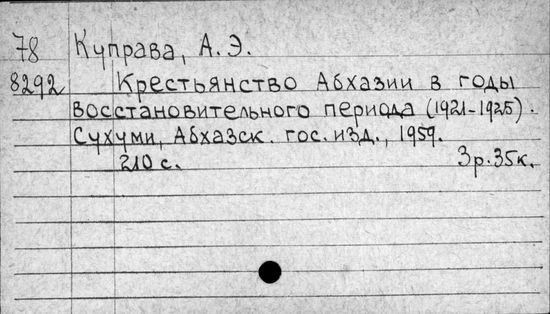 78 Куправа, А. Э.
8292 Крестьянство Абхазии в годы
восстановительного периода (1921-1925).
Сухуми, Абхазск. гос. изд., 1959.
210 с. 3р.35к.